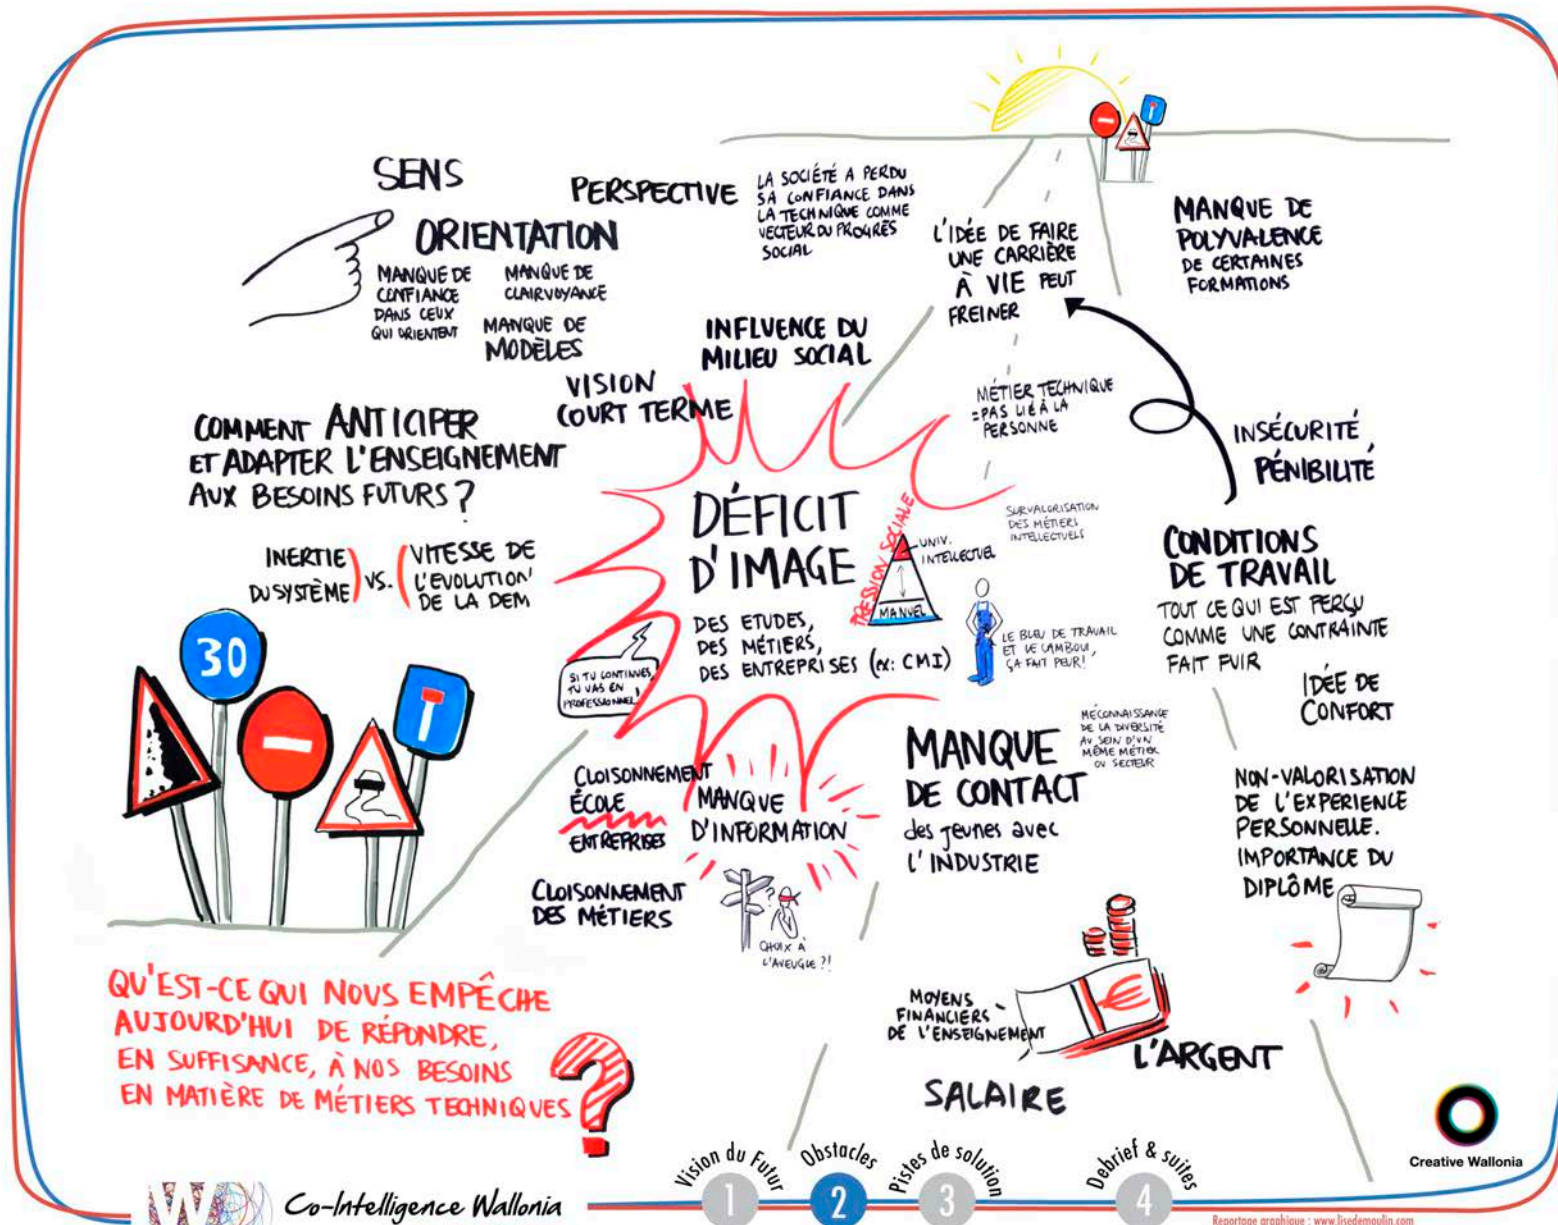 SENS
ORIENTATION
MANQUE DE
CONFIANCE
DANS CEUX
QUI ORIENTENT
MANQUE DE
CLAIRVOYANCE
MANQUE DE
MODÈLES
PERSPECTIVE
LA SOCIÉTÉ A PERDU
SA CONFIANCE DANS
LA TECHNIQUE COMME
VECTEUR DU PROGRÈS
SOCIAL
L'IDÉE DE FAIRE
UNE CARRIÈRE
À VIE PEUT
FREINER
MANQUE DE
POLYVALENCE
DE CERTAINES
FORMATIONS
INFLUENCE DU
MILIEU SOCIAL
VISION
COURT TERME
MÉTIER TECHNIQUE
= PAS LIÉ À LA
PERSONNE
INSÉCURITÉ,
PÉNIBILITÉ
COMMENT ANTICIPER
ET ADAPTER L'ENSEIGNEMENT
AUX BESOINS FUTURS ?
INERTIE
DU SYSTÈME
VS.
VITESSE DE
L'ÉVOLUTION
DE LA DEM
DÉFICIT
D'IMAGE
DES ETUDES,
DES MÉTIERS,
DES ENTREPRISES (ex: CMI)
PRESSION SOCIALE
UNIV.
INTELLECTUEL
MANUEL
SURVALORISATION
DES MÉTIERS
INTELLECTUELS
LE BLEU DE TRAVAIL
ET LE CAMBOUI,
ÇA FAIT PEUR!
CONDITIONS
DE TRAVAIL
TOUT CE QUI EST PERÇU
COMME UNE CONTRAINTE
FAIT FUIR
IDÉE DE
CONFORT
30
SI TU CONTINUES,
TU VAS EN
PROFESSIONNEL!
CLOISONNEMENT
ÉCOLE
ENTREPRISES
MANQUE
D'INFORMATION
CLOISONNEMENT
DES MÉTIERS
?
CHOIX À
L'AVEUGLE ?!
MANQUE
DE CONTACT
des jeunes avec
L'INDUSTRIE
MÉCONNAISSANCE
DE LA DIVERSITÉ
AU SEIN D'UN
MÊME MÉTIER
OU SECTEUR
NON-VALORISATION
DE L'EXPERIENCE
PERSONNELLE.
IMPORTANCE DU
DIPLÔME
MOYENS
FINANCIERS
DE L'ENSEIGNEMENT
L'ARGENT
SALAIRE
QU'EST-CE QUI NOUS EMPÊCHE
AUJOURD'HUI DE RÉPONDRE,
EN SUFFISANCE, À NOS BESOINS
EN MATIÈRE DE MÉTIERS TECHNIQUES
?
Creative Wallonia
W
Co-Intelligence Wallonia
Vision du Futur
1
Obstacles
2
Pistes de solution
3
Debrief & suites
4
Reportage graphique : www.lisedemoulin.com